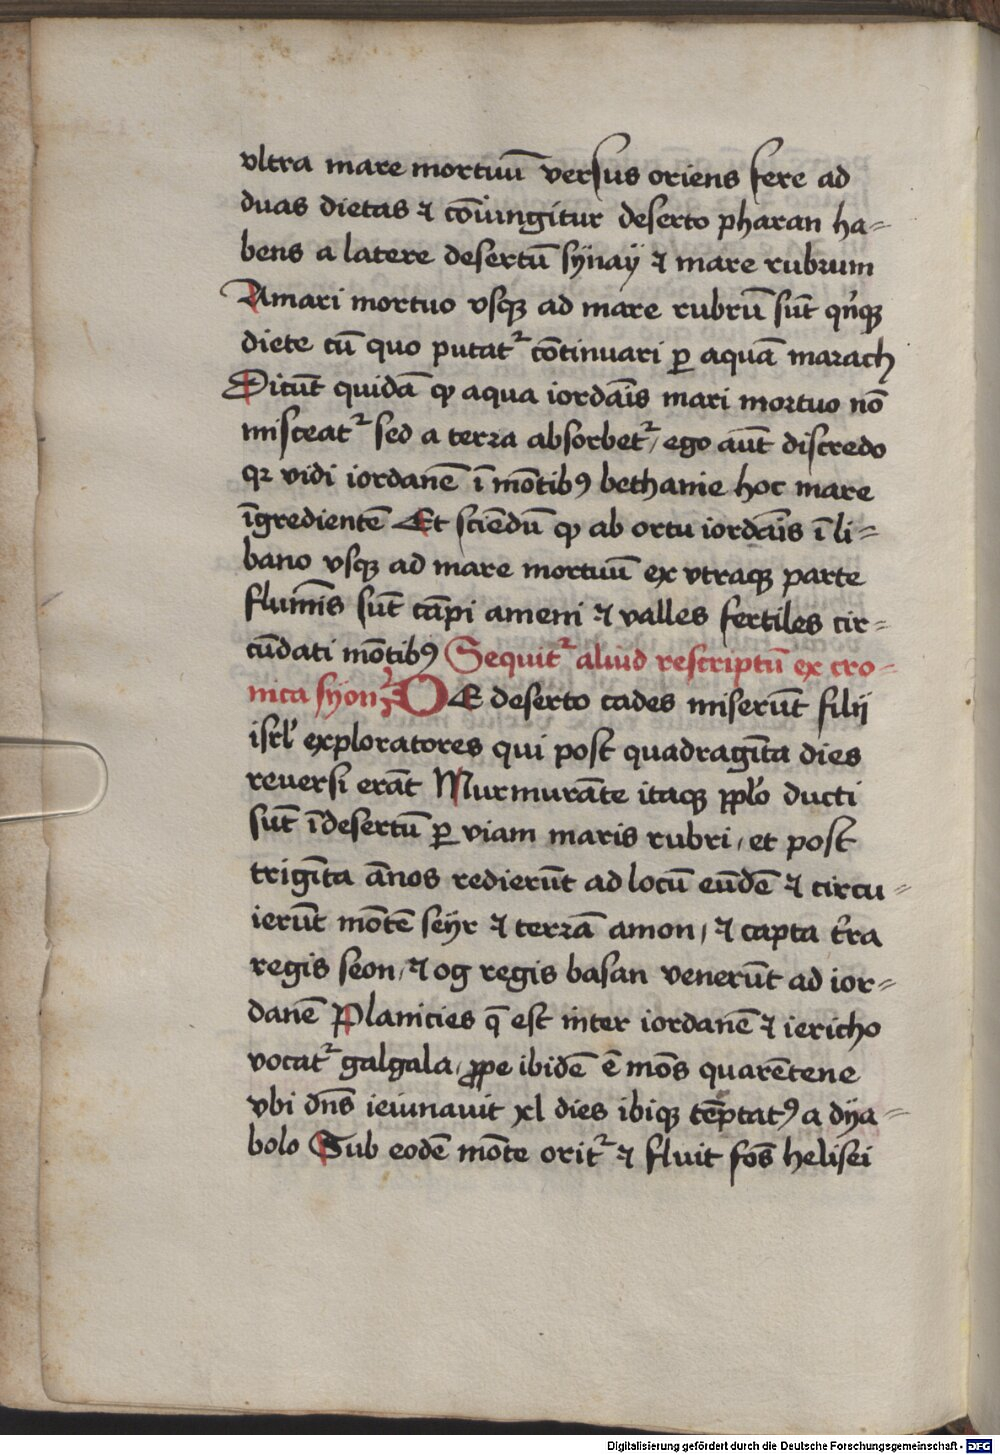 vltra mare mortuū versus oriens fere ad
duas dietas ⁊ cōiungitur deserto pharan ha=
bens a latere desertū sÿnaÿ ⁊ mare rubrum
Amari mortuo vsqꝫ ad mare rubrū sūt qn̄qꝫ
diete cū quo putatᷣ cōtinuari ꝑ aquā marach
Dicūt quidā ꝙ aqua iordāis mari mortuo nō
misceatᷣ sed a terra absorbetᷣ / ego aūt discredo
qꝛ vidi iordanē ī mōtibꝰ bethanie hoc mare
īgredientē Et sciēdū ꝙ ab ortu iordāis ī li=
bano vsqꝫ ad mare mortuū ex vtraqꝫ parte
flumīs sūt cāpi ameni ⁊ valles fertiles cir=
cūdati mōtibꝰ Sequitᷣ aliud rescriptū ex cro=
nica syon DE deserto cades miserūt filij
isrl̄ exploratores qui post quadragīta dies
reuersi erāt Murmurāte itaqꝫ pplo ducti
sūt īdesertū ꝑ viam maris rubri / et post
trigīta ānos redierūt ad locū eūdē ⁊ circu=
ierūt mōtē seÿr ⁊ terrā amon / ⁊ capta t̄ra
regis seon / ⁊ og regis basan venerūt ad ior=
danē Planicies q̄ est inter iordanē ⁊ iericho
vocatᷣ galgala / ꝓpe ibidē ē mōs quarētene
vbi dn̄s ieiunauit xl dies ibiqꝫ tēptatꝰ a dÿa=
bolo Sub eodē mōte oritᷣ ⁊ fluit fōs helisei
Digitalisierung gefördert durch die Deutsche Forschungsgemeinschaft - DFG